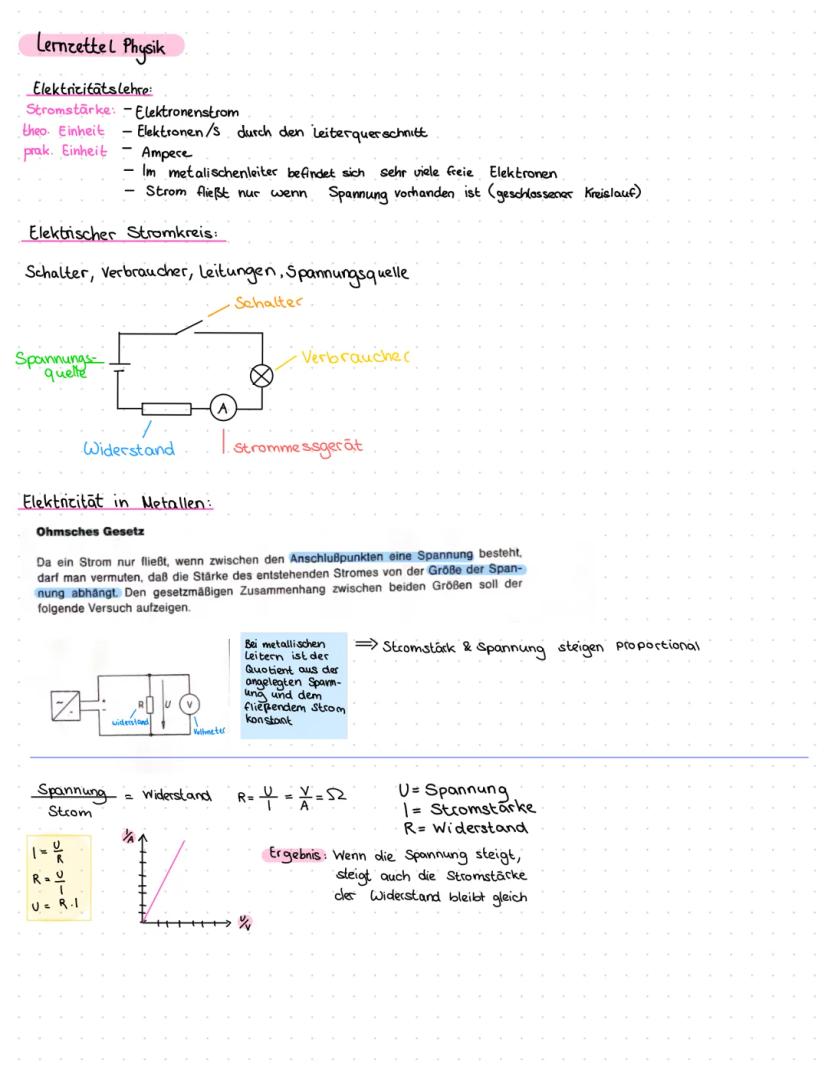 Lernzettel Physik
Elektrizitätslehre:
Stromstärke: - Elektronenstrom
theo. Einheit - Elektronen/s durch den Leiterquerschnitt
prak. Einheit - Ampere
- Im metalischenleiter befindet sich sehr viele freie Elektronen
- Strom fließt nur wenn Spannung vorhanden ist (geschlossener Kreislauf)
Elektrischer Stromkreis:
Schalter, Verbraucher, Leitungen, Spannungsquelle
Schalter
Spannungs-
quelle
Verbraucher
A
Widerstand
Strommessgerät
Elektrizität in Metallen:
Ohmsches Gesetz
Da ein Strom nur fließt, wenn zwischen den Anschlußpunkten eine Spannung besteht,
darf man vermuten, daß die Stärke des entstehenden Stromes von der Größe der Span-
nung abhängt. Den gesetzmäßigen Zusammenhang zwischen beiden Größen soll der
folgende Versuch aufzeigen.
Bei metallischen
Leitern ist der
Quotient aus der
angelegten Spann-
ung und dem
fließendem Strom
konstant
=> Stromstärk & Spannung steigen proportional
R U V
widerstand
Voltmeter
Spannung
Strom
= Widerstand R = U/I = V/A = Ω
U = Spannung
I = Stromstärke
R = Widerstand
I = U/R
R = U/I
U = R · I
I/A
U/V
Ergebnis: Wenn die Spannung steigt,
steigt auch die Stromstärke
der Widerstand bleibt gleich